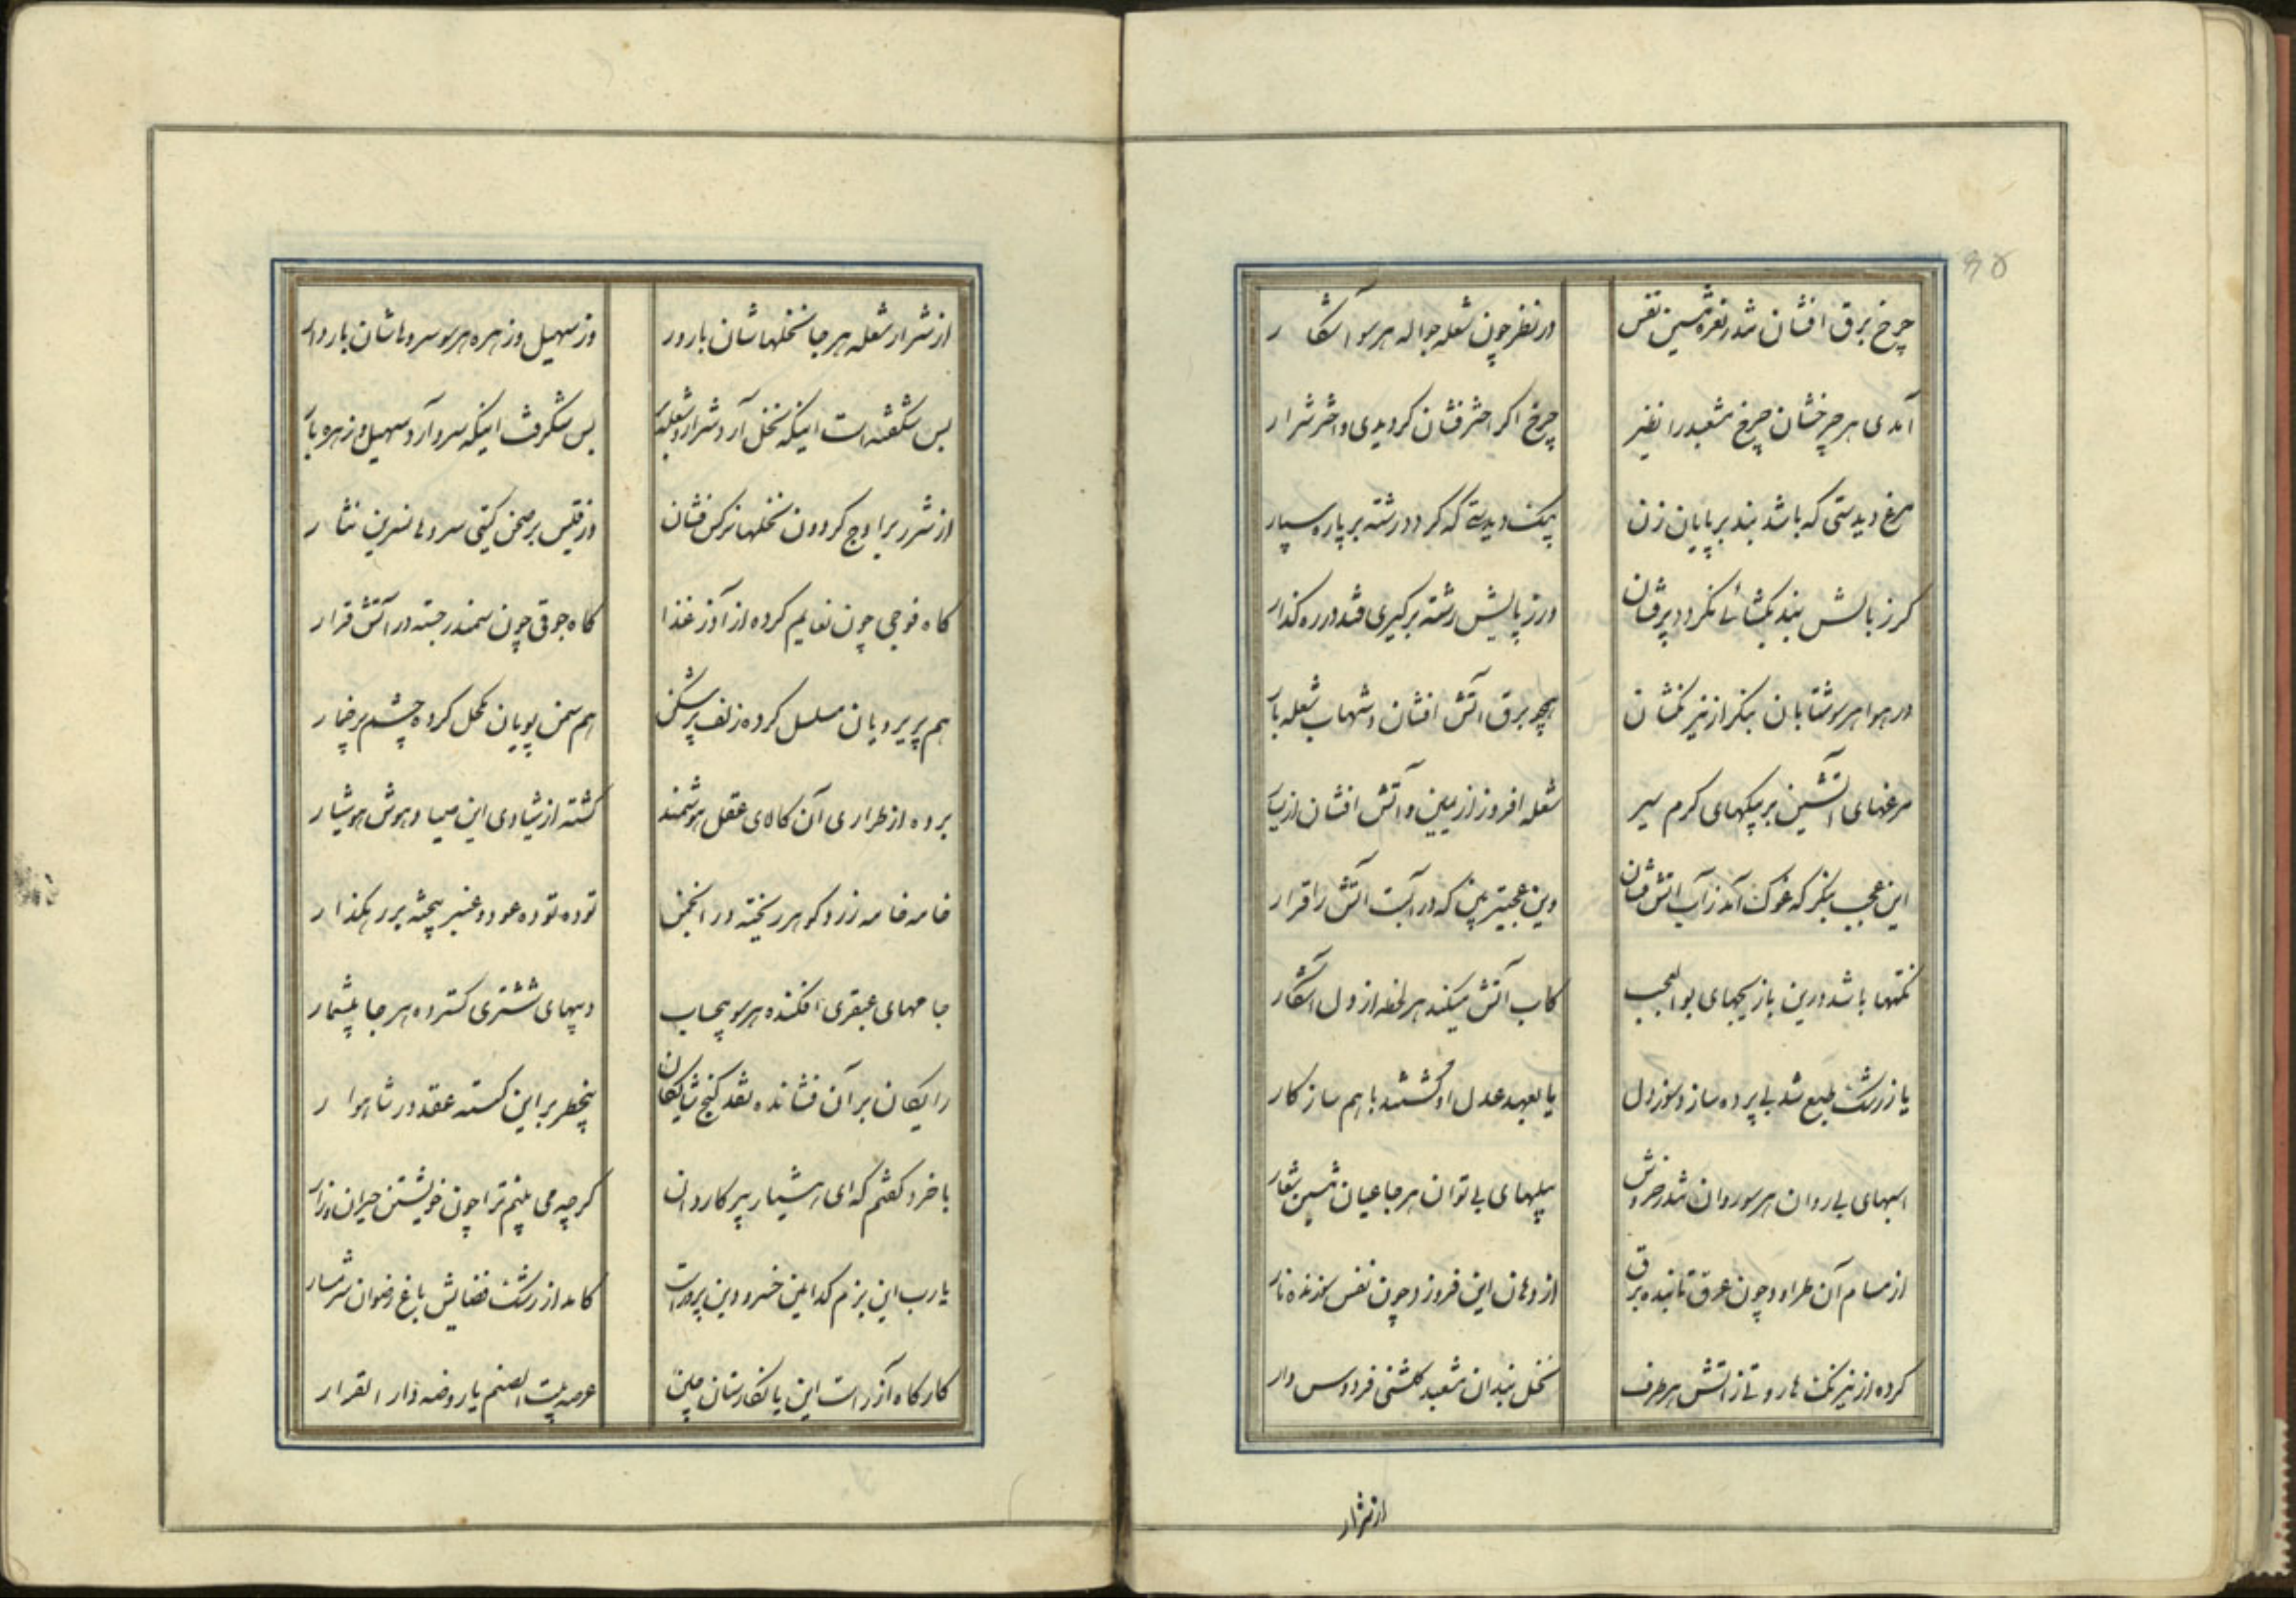 ۹۵
چرخ برق افشان شد در نعره شمین نفس در نظر چون شعله جواله هر سو آشکار
آمدی هر چرخشان چرخ مشعبد را نظیر چرخ اگر اختر فشان کردیدی و اختر شرار
مرغ دیدستی که باشد بند بر پایان زن پیک دیدستی که کردد رشته بر پا ره سپار
کر ز بالش بند بکشائی نکردد پر فشان ور ز پایش رشته برکیری فتد در ره کذار
در هوا هر سو شتابان بنکر از نیرنکشان همچو برق آتش افشان و شهاب شعله بار
مرغهای آتشین پر پیکهای کرم سیر شعله افروز از یمین و آتش افشان از یسار
این عجب بنکر که غوک آمد ز آب آتش فشان وین عجبتر بین که در آبست آتش را قرار
نکتها باشد درین بازیچهای بوالعجب کاب آتش میکند هر لحظه از دل آشکار
یا ز رشک طبع شد بی پرده ساز و سوز دل یا بعهد عدل او کشتند با هم سازکار
اسبهای بی روان هر سو روان شد در خروش پیلهای بی توان هر جا عیان شمین شعار
از مسام آن طراود چون عرق تابنده برق از دهان این فروزد چون نفس سوزنده نار
کرده از نیرنک هاروتی ز آتش هر طرف نخل بندان مشعبد کلشنی فردوس وار
از شرار
از شرار شعله هر جا نخلهاشان بارور وز سهیل و زهره هر سو سروهاشان باردار
بس شکفتست اینکه نخل آرد شرار و شعله بر بس شکرف اینکه سرو آرد سهیل و زهره بار
از شرر بر اوج کردون نخلها نرکس فشان وز قبس بر صحن کیتی سروها نسرین نثار
کاه فوجی چون نعایم کرده از آذر غذا کاه جوقی چون سمندر جسته در آتش قرار
هم پریرویان مسلسل کرده زلف پر شکن هم سمن بویان مکحل کرده چشم پر خمار
برده از طراری آن کالای عقل هوشمند کشته از شیادی این صیاد هوش هوشیار
خامه خامه زر و کوهر ریخته در انجمن توده توده عود و عنبر پیخته بر رهکذار
جامهای عبقری افکنده هر سو بیحساب دیبهای ششتری کسترده هر جا بیشمار
رایکان بر آن فشانده نقد کنج شایکان بیخطر بر این کسسته عقد در شاهوار
با خرد کفتم که ای هشیار پیر کاردان کرچه می بینم ترا چون خویشتن حیران و زار
یا رب این بزم کدامین خسرو دین پرورست کامد از رشک فضایش باغ رضوان شرمسار
کارکاه آزرست این یا نکارستان چین عرصه بیت الصنم یا روضه دار القرار